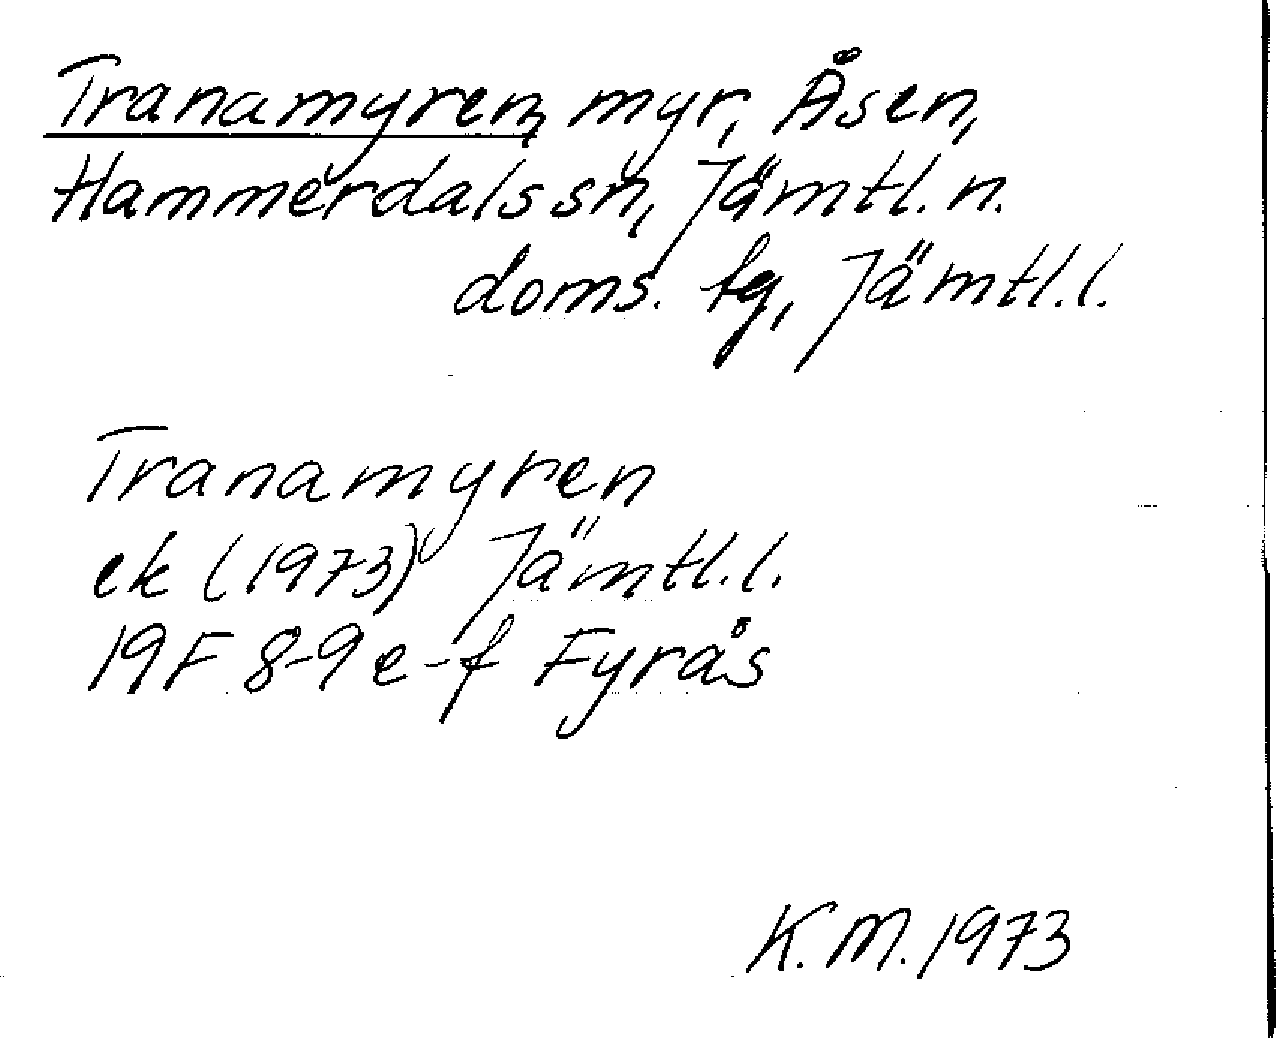 Tranamyren, myr, Åsen,
Hammerdals sn, Jämtl. n.
doms. fg, Jämtl. l.
Tranamyren
ek (1973) Jämtl. l.
19F 8-9 e-f Fyrås
K. M. 1973